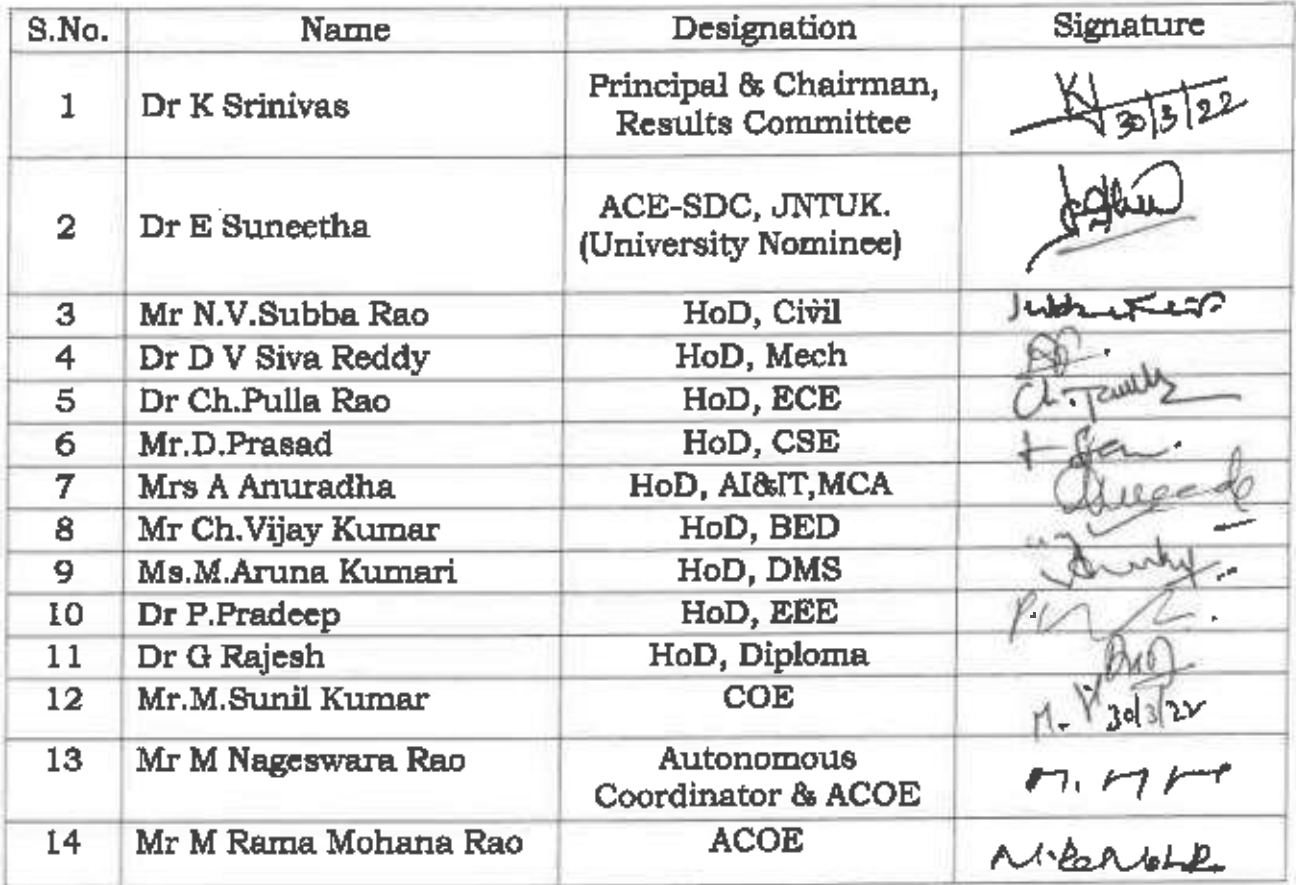 S.No. Name Designation Signature
1 Dr K Srinivas Principal & Chairman,
Results Committee
30/3/22
2 Dr E Suneetha ACE-SDC, JNTUK.
(University Nominee)
3 Mr N.V.Subba Rao HoD, Civil
4 Dr D V Siva Reddy HoD, Mech
5 Dr Ch.Pulla Rao HoD, ECE
6 Mr.D.Prasad HoD, CSE
7 Mrs A Anuradha HoD, AI&IT,MCA
8 Mr Ch.Vijay Kumar HoD, BED
9 Ms.M.Aruna Kumari HoD, DMS
10 Dr P.Pradeep HoD, EEE
11 Dr G Rajesh HoD, Diploma
12 Mr.M.Sunil Kumar COE
30/3/22
13 Mr M Nageswara Rao Autonomous
Coordinator & ACOE
14 Mr M Rama Mohana Rao ACOE